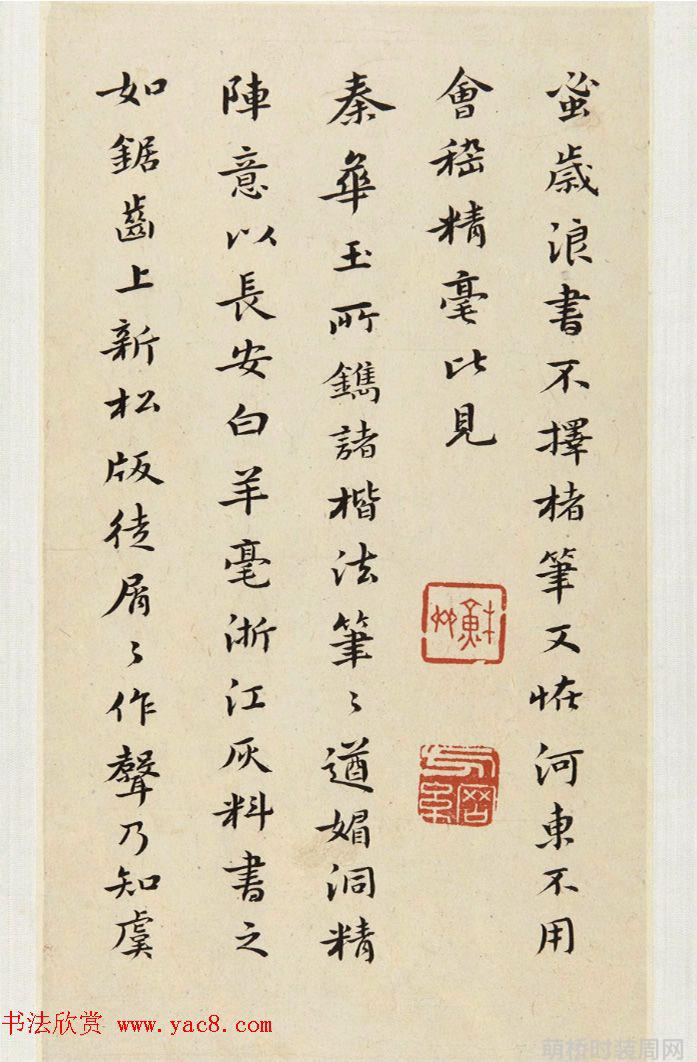 蚤歲浪書不擇楮筆又怪河東不用
會稽精毫比見
秦華玉所鐫諸楷法筆〻遒媚洞精
陣意以長安白羊毫浙江灰料書之
如鋸齒上新松版徒屑〻作聲乃知虞
书法欣赏 www.yac8.com
萌桥时装周网